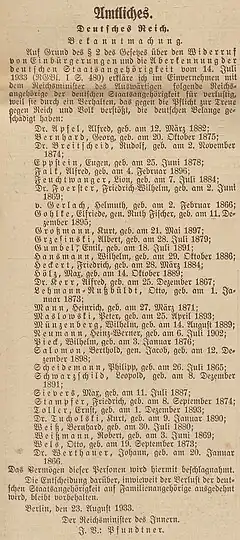 Amtliches.
Deutsches Reich.
Bekanntmachung.
Auf Grund des § 2 des Gesetzes über den Widerruf
von Einbürgerungen und die Aberkennung der
deutschen Staatsangehörigkeit vom 14. Juli
1933 (RGBl. I S. 480) erkläre ich im Einvernehmen mit
dem Reichsminister des Auswärtigen folgende Reichs-
angehörige der deutschen Staatsangehörigkeit für verlustig,
weil sie durch ein Verhalten, das gegen die Pflicht zur Treue
gegen Reich und Volk verstößt, die deutschen Belange ge-
schädigt haben:
Dr. Apfel, Alfred, geb. am 12. März 1882;
Bernhard, Georg, geb. am 20. Oktober 1875;
Dr. Breitscheid, Rudolf, geb. am 2. November
1874;
Eppstein, Eugen, geb. am 25. Juni 1878;
Falk, Alfred, geb. am 4. Februar 1896;
Feuchtwanger, Lion, geb. am 7. Juli 1884;
Dr. Foerster, Friedrich-Wilhelm, geb. am 2. Juni
1869;
v. Gerlach, Helmuth, geb. am 2. Februar 1866;
Gohlke, Elfriede, gen. Ruth Fischer, geb. am 11. De-
zember 1895;
Großmann, Kurt, geb. am 21. Mai 1897;
Grzesinski, Albert, geb. am 28. Juli 1879;
Gumbel, Emil, geb. am 18. Juli 1891;
Hansmann, Wilhelm, geb. am 29. Oktober 1886;
Heckert, Friedrich, geb. am 28. März 1884;
Hölz, Max, geb. am 14. Oktober 1889;
Dr. Kerr, Alfred, geb. am 25. Dezember 1867;
Lehmann-Rußbüldt, Otto, geb. am 1. Ja-
nuar 1873;
Mann, Heinrich, geb. am 27. März 1871;
Maslowski, Peter, geb. am 25. April 1893;
Münzenberg, Wilhelm, geb. am 14. August 1889;
Neumann, Heinz Werner, geb. am 6. Juli 1902;
Pieck, Wilhelm, geb. am 3. Januar 1876;
Salomon, Berthold, gen. Jacob, geb. am 12. De-
zember 1898;
Scheidemann, Philipp, geb. am 26. Juli 1865;
Schwarzschild, Leopold, geb. am 8. Dezember
1891;
Sievers, Max, geb. am 11. Juli 1887;
Stampfer, Friedrich, geb. am 8. September 1874;
Toller, Ernst, geb. am 1. Dezember 1893;
Dr. Tucholski, Kurt, geb. am 9. Januar 1890;
Weiß, Bernhard, geb. am 30. Juli 1880;
Weißmann, Robert, geb. am 3. Juni 1869;
Wels, Otto, geb. am 19. September 1873;
Dr. Werthauer, Johann, geb. am 20. Januar
1866.
Das Vermögen dieser Personen wird hiermit beschlagnahmt.
Die Entscheidung darüber, inwieweit der Verlust der deut-
schen Staatsangehörigkeit auf Familienangehörige ausgedehnt
wird, bleibt vorbehalten.
Berlin, den 23. August 1933.
Der Reichsminister des Innern.
J. V.: Pfundtner.